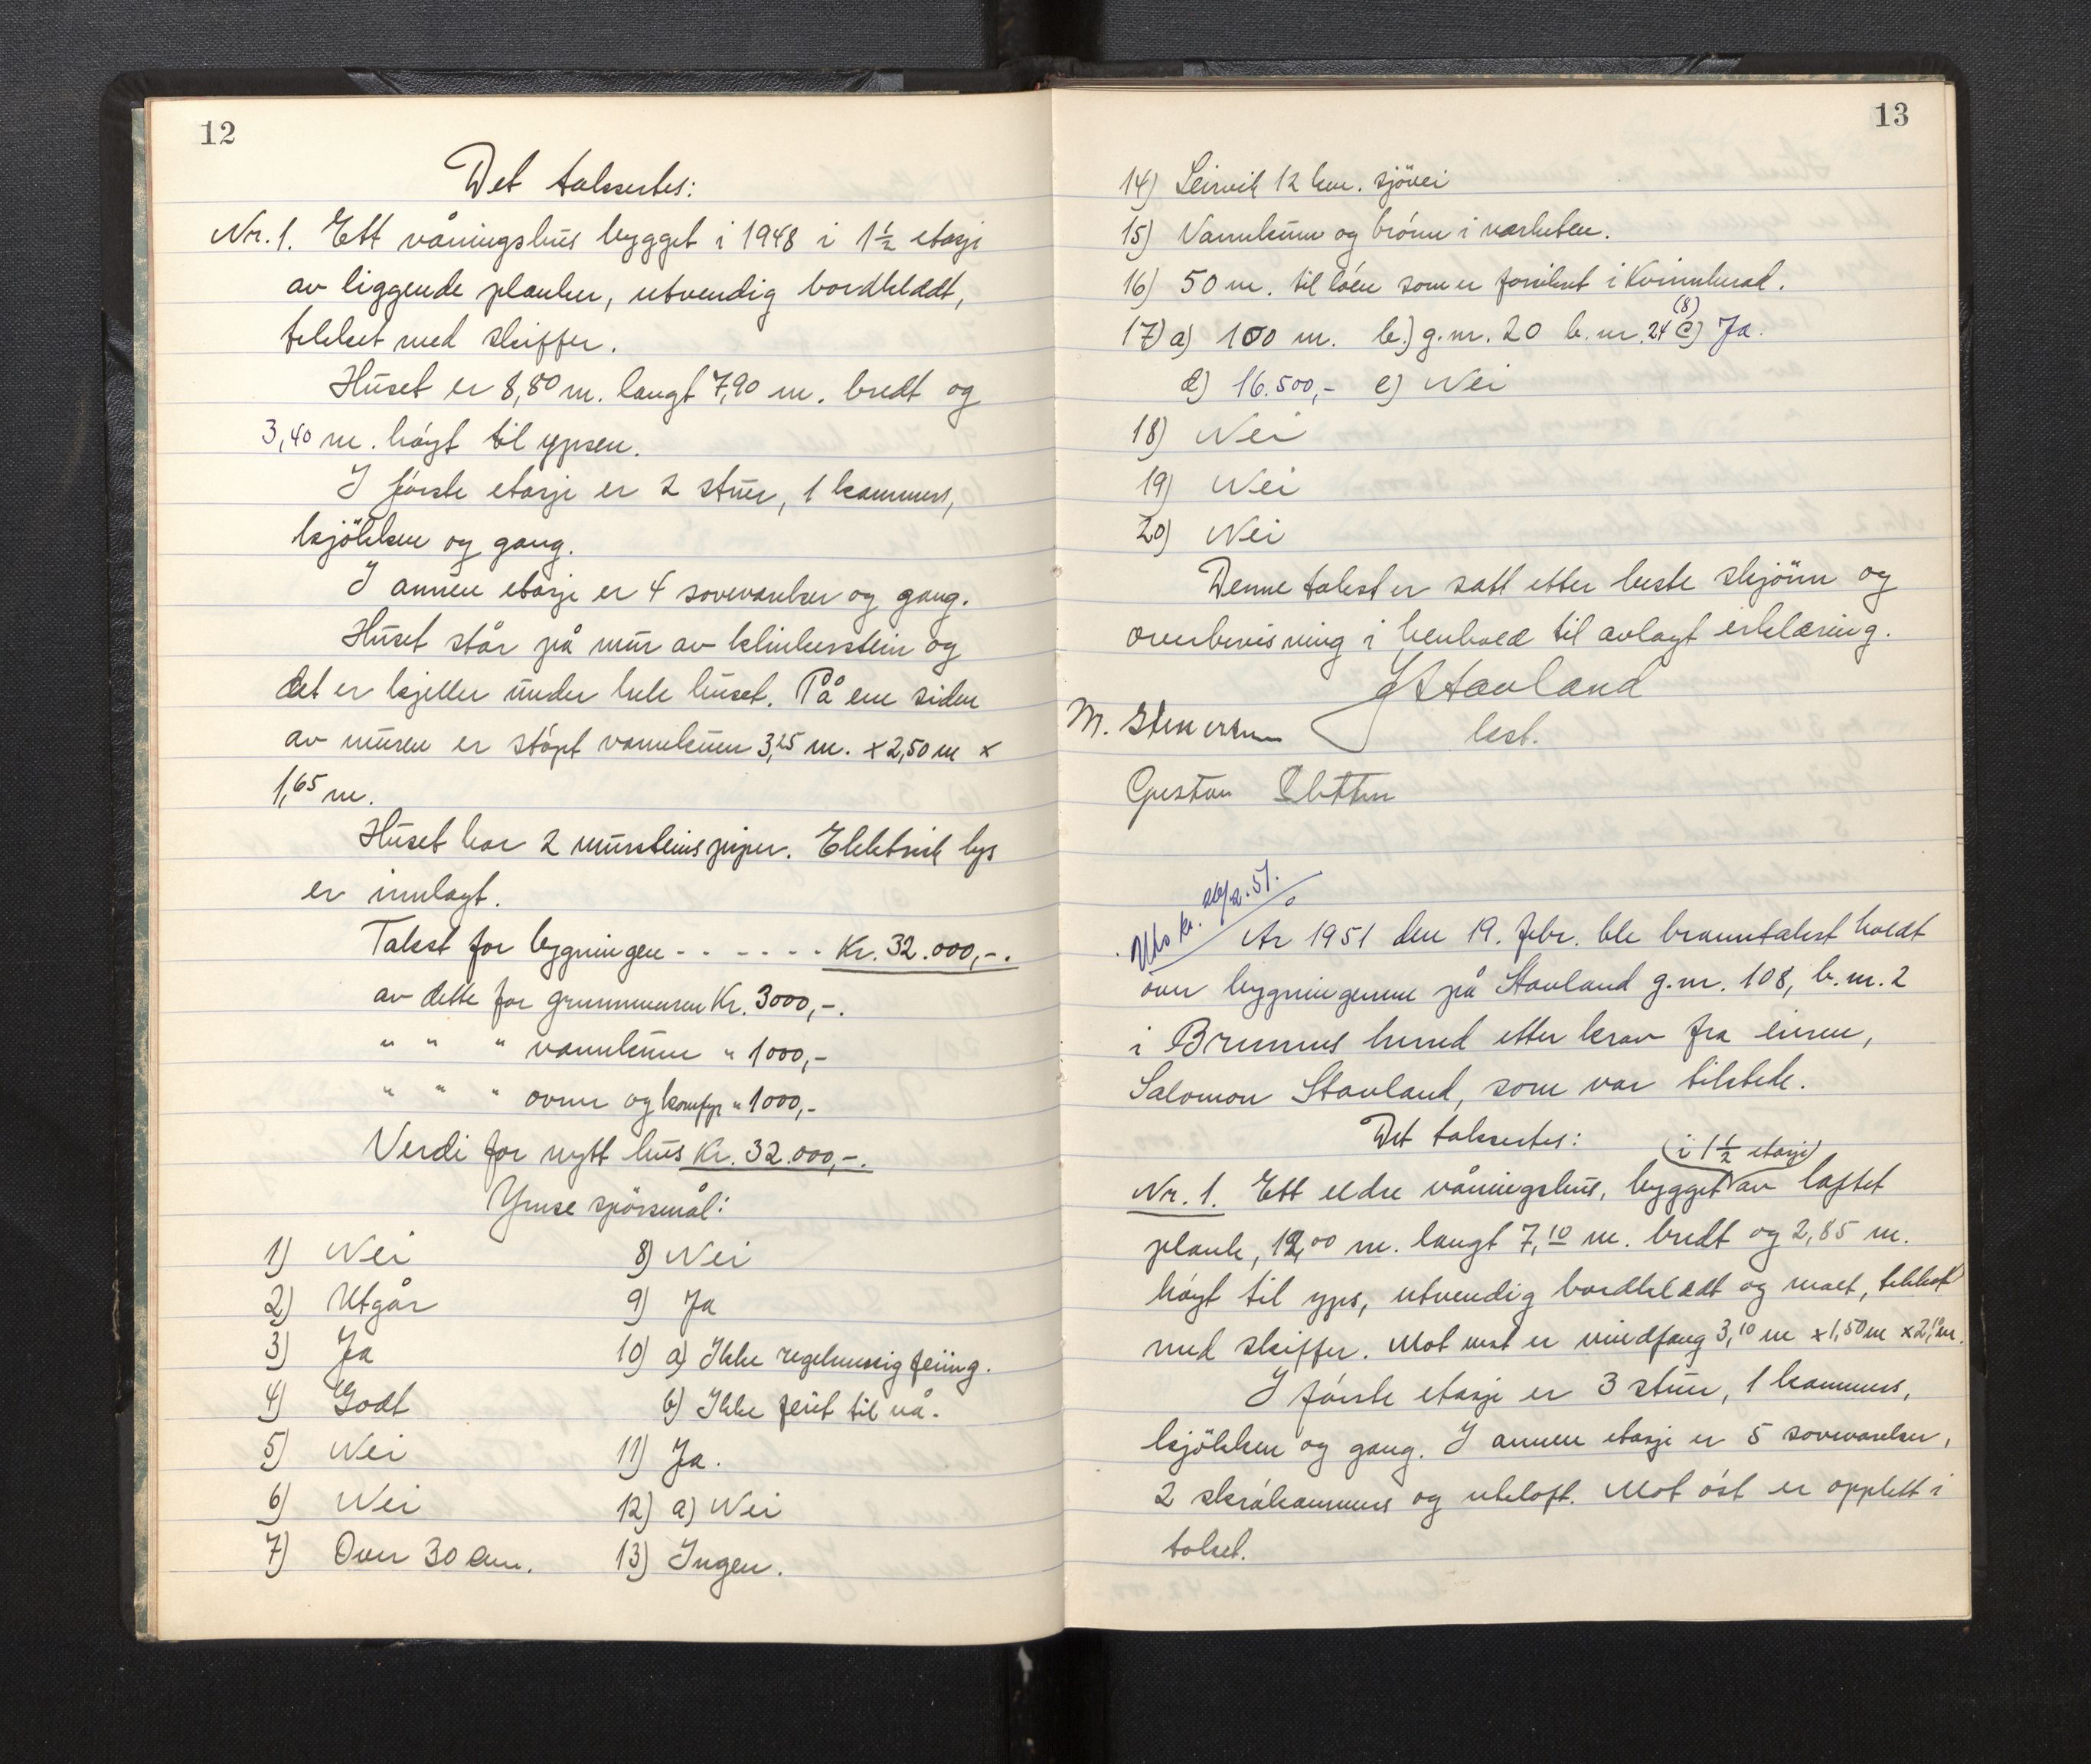 12
Det takseertes:
Nr. 1. Ett våningshus bygget i 1948 i 1½ etasje
av liggende planker, utvendig bordkledt,
tekket med skiffer.
Huset er 8,80 m. langt 7,90 m. bredt og
3,40 m. høyt til ypsen.
I første etasje er 2 stuer, 1 kammers,
kjökken og gang.
I annen etasje er 4 soveværelser og gang.
Huset står på mur av klinkerstein og
det er kjeller under hele huset. På ene siden
av muren er støpt vannkum 3,25 m. x 2,50 m x
1,65 m.
Huset har 2 mursteinspiper. Elektrisk lys
er innlagt.
Takst for bygningen - - - - - - Kr. 32.000,-.
av dette for grunnmuren Kr. 3000,-.
" " " vannkum " 1000,-
" " " ovner og komfyr " 1000,-
Verdi for nytt hus Kr. 32.000,-.
Ymse spörsmål:
1) Nei
2) Utgår
3) Ja
4) Godt
5) Nei
6) Nei
7) Over 30 cm.
8) Nei
9) Ja
10) a) Ikke regelmessig feiing.
b) Ikke feiet til nå.
11) Ja.
12) a) Nei
13) Ingen.
13
14) Leirvik 12 km. sjövei
15) Vannkum og brönn i nærheten.
16) 50 m. til löen som er forsikret i Kvinnherad.
(8)
17) a) 100 m. b.) g.nr. 20 b.nr. 24 c) Ja.
d) 16.500,- e) Nei
18) Nei
19) Nei
20) Nei
Denne takst er satt etter beste skjönn og
overbevisning i henhold til avlagt erklæring.
Stavland
M. lest.
Gustav
26/2.51.
År 1951 den 19. febr. ble branntakst holdt
over bygningene på Stavland g.nr. 108, b.nr. 2
i Bremnes herred etter krav fra eieren,
Salomon Stavland, som var tilstede.
Det takseertes:
(i 1½ etasje)
Nr. 1. Ett eldre våningshus, bygget av laftet
plank, 12,00 m. langt 7,10 m. bredt og 2,85 m.
høyt til yps, utvendig bordkledt og malt, tekket
med skiffer. Mot vest er vindfang 3,10 m x 1,50 m x 2,10 m.
I første etasje er 3 stuer, 1 kammers,
kjökken og gang. I annen etasje er 5 soveværelser,
2 skråkammers og uteloft. Mot öst er opplett i
taket.